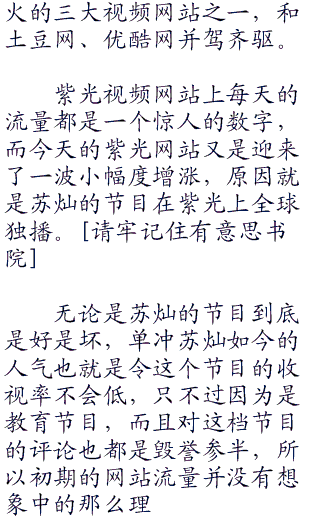 火的三大视频网站之一，和
土豆网、优酷网并驾齐驱。
紫光视频网站上每天的
流量都是一个惊人的数字，
而今天的紫光网站又是迎来
了一波小幅度增涨，原因就
是苏灿的节目在紫光上全球
独播。[请牢记住有意思书
院]
无论是苏灿的节目到底
是好是坏，单冲苏灿如今的
人气也就是令这个节目的收
视率不会低，只不过因为是
教育节目，而且对这档节目
的评论也都是毁誉参半，所
以初期的网站流量并没有想
象中的那么理